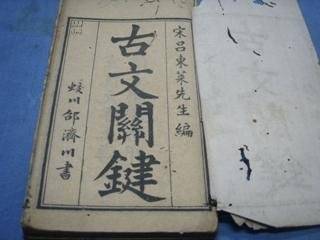 宋吕東萊先生編
古文關鍵
蛟川邵濟川書